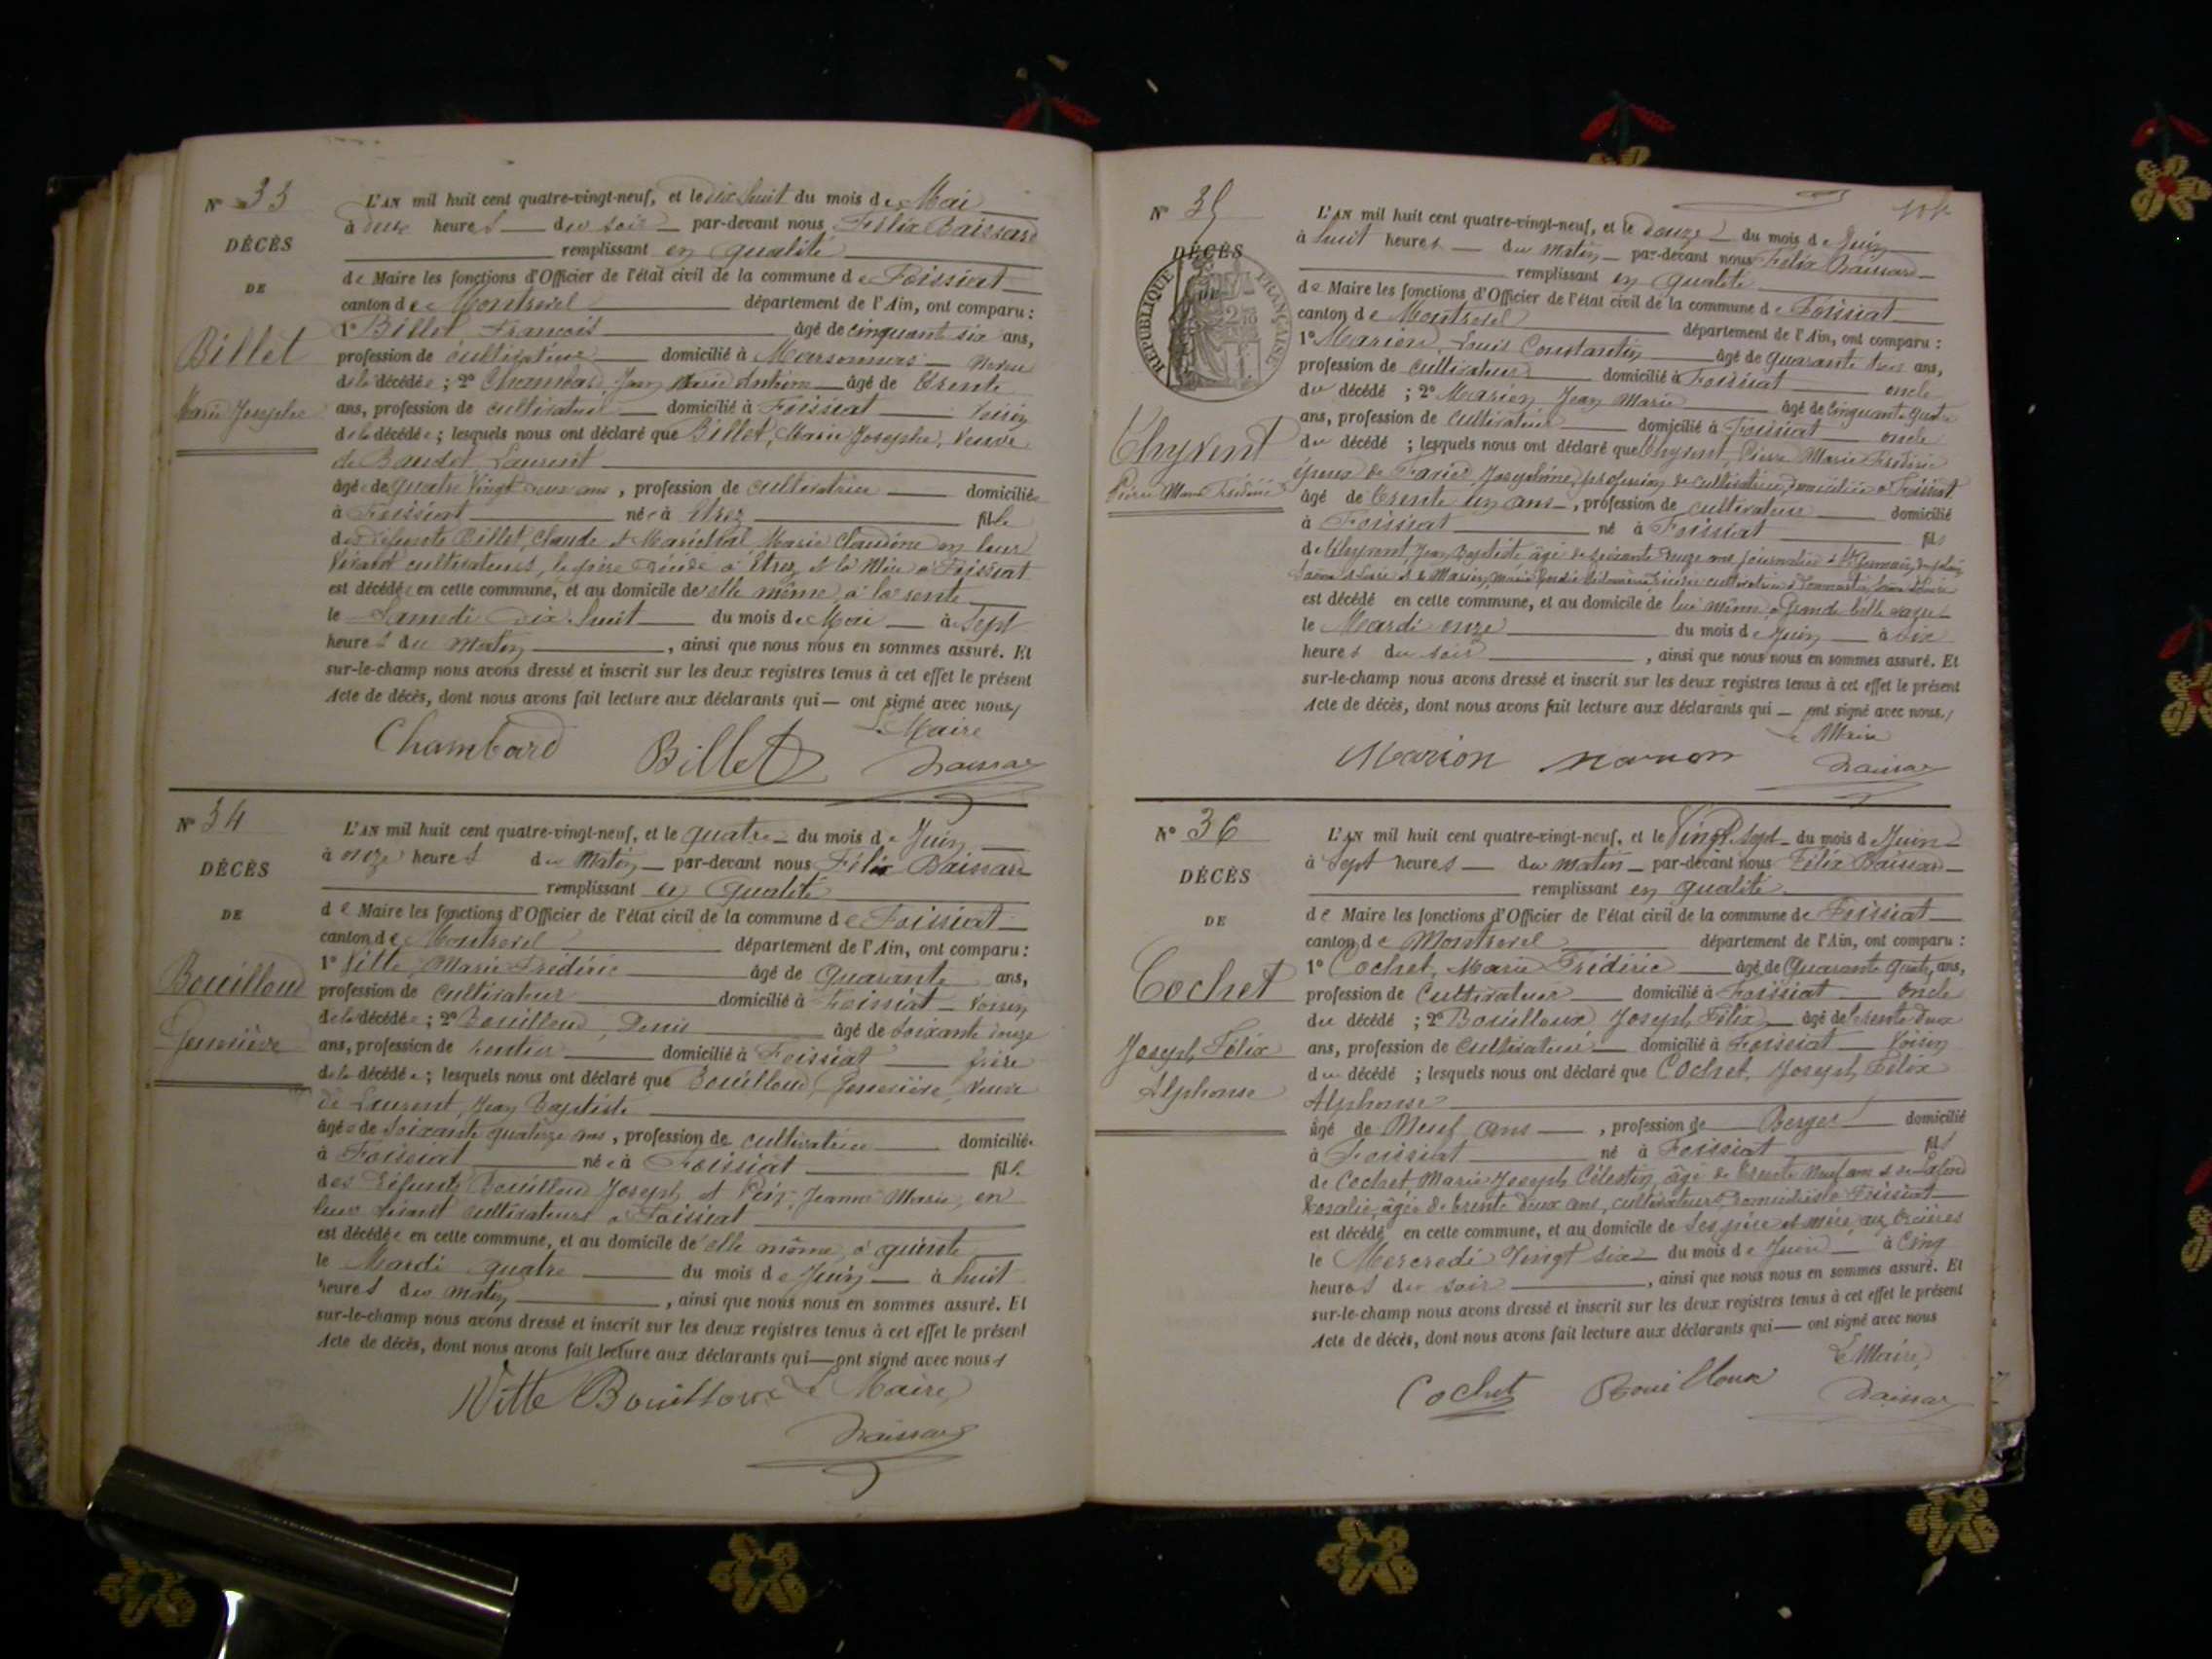 N° 33
DÉCÈS
DE
Billet
Marie Josephe
L'AN mil huit cent quatre-vingt-neuf, et le dix huit du mois de Mai
à deux heures du soir par-devant nous Félix Baissard
remplissant en qualité
de Maire les fonctions d'Officier de l'état civil de la commune de Foissiat
canton de Montrevel département de l'Ain, ont comparu :
1° Billet, François âgé de cinquante six ans,
profession de cultivateur domicilié à Marsonnas
de la décédée ; 2° Chambard Jean Marie Antoine âgé de trente
ans, profession de cultivateur domicilié à Foissiat voisin
de la décédée ; lesquels nous ont déclaré que Billet, Marie Josephe, veuve
de Laurent
âgée de quatre vingt deux ans, profession de cultivatrice domiciliée
à Foissiat née à Etrez fille
des défunts Billet, Claude et Maréchal Marie Claudine en leur
vivant cultivateurs, le père décédé à Etrez et la mère à Foissiat
est décédée en cette commune, et au domicile de elle même, à la sente
le Samedi dix huit du mois de Mai à sept
heures du matin, ainsi que nous nous en sommes assuré. Et
sur-le-champ nous avons dressé et inscrit sur les deux registres tenus à cet effet le présent
Acte de décès, dont nous avons fait lecture aux déclarants qui — ont signé avec nous
Le Maire
Chambard Billet Baissard
N° 34
DÉCÈS
DE
Bouilloud
Geneviève
L'AN mil huit cent quatre-vingt-neuf, et le quatre du mois de Juin
à onze heures du matin par-devant nous Félix Baissard
remplissant en qualité
de Maire les fonctions d'Officier de l'état civil de la commune de Foissiat
canton de Montrevel département de l'Ain, ont comparu :
1° Vitte, Marie Frédéric âgé de quarante ans,
profession de cultivateur domicilié à Foissiat voisin
de la décédée ; 2° Bouilloud, Denis âgé de soixante douze
ans, profession de rentier domicilié à Foissiat frère
de la décédée ; lesquels nous ont déclaré que Bouilloud, Geneviève, veuve
de Laurent, Jean Baptiste
âgée de soixante quatorze ans, profession de cultivatrice domiciliée
à Foissiat née à Foissiat fille
des défunts Bouilloud Joseph et Jeanne Marie, en
leur vivant cultivateurs à Foissiat
est décédée en cette commune, et au domicile de elle même, à
le Mardi quatre du mois de Juin à huit
heures du matin, ainsi que nous nous en sommes assuré. Et
sur-le-champ nous avons dressé et inscrit sur les deux registres tenus à cet effet le présent
Acte de décès, dont nous avons fait lecture aux déclarants qui — ont signé avec nous
Vitte Bouilloux Le Maire
Baissard
N° 35
DÉCÈS
DE
RÉPUBLIQUE FRANÇAISE
Chyvent
Pierre Marie Frédéric
L'AN mil huit cent quatre-vingt-neuf, et le douze du mois de Juin
à huit heures du matin par-devant nous Félix Baissard
remplissant en qualité
de Maire les fonctions d'Officier de l'état civil de la commune de Foissiat
canton de Montrevel département de l'Ain, ont comparu :
1° Marion, Louis Constantin âgé de quarante trois ans,
profession de cultivateur domicilié à Foissiat oncle
du décédé ; 2° Marion Jean Marie âgé de cinquante quatre
ans, profession de cultivateur domicilié à Foissiat oncle
du décédé ; lesquels nous ont déclaré que Chyvent, Pierre Marie Frédéric
époux de Joséphine, profession de cultivatrice, domiciliée à Foissiat
âgé de trente un ans, profession de cultivateur domicilié
à Foissiat né à Foissiat fils
de Chyvent Jean Baptiste âgé de soixante ans journalier à St Germain
Saône et Loire et de Marion Marie
est décédé en cette commune, et au domicile de lui même, à
le Mardi onze du mois de Juin à six
heures du soir, ainsi que nous nous en sommes assuré. Et
sur-le-champ nous avons dressé et inscrit sur les deux registres tenus à cet effet le présent
Acte de décès, dont nous avons fait lecture aux déclarants qui — ont signé avec nous
Le Maire
Marion Marion Baissard
N° 36
DÉCÈS
DE
Cochet
Joseph Félix
Alphonse
L'AN mil huit cent quatre-vingt-neuf, et le vingt sept du mois de Juin
à sept heures du matin par-devant nous Félix Baissard
remplissant en qualité
de Maire les fonctions d'Officier de l'état civil de la commune de Foissiat
canton de Montrevel département de l'Ain, ont comparu :
1° Cochet, Marie Frédéric âgé de quarante quatre ans,
profession de cultivateur domicilié à Foissiat oncle
du décédé ; 2° Bouilloux Joseph Félix âgé de trente deux
ans, profession de cultivateur domicilié à Foissiat voisin
du décédé ; lesquels nous ont déclaré que Cochet, Joseph Félix
Alphonse
âgé de Neuf ans, profession de Berger domicilié
à Foissiat né à Foissiat fils
de Cochet Marie Joseph Célestin, âgé de trente neuf ans et de
Rosalie, âgée de trente deux ans, cultivateurs domiciliés à Foissiat
est décédé en cette commune, et au domicile de ses père et mère aux
le Mercredi vingt six du mois de Juin à cinq
heures du soir, ainsi que nous nous en sommes assuré. Et
sur-le-champ nous avons dressé et inscrit sur les deux registres tenus à cet effet le présent
Acte de décès, dont nous avons fait lecture aux déclarants qui — ont signé avec nous
Le Maire
Cochet Bouilloux Baissard